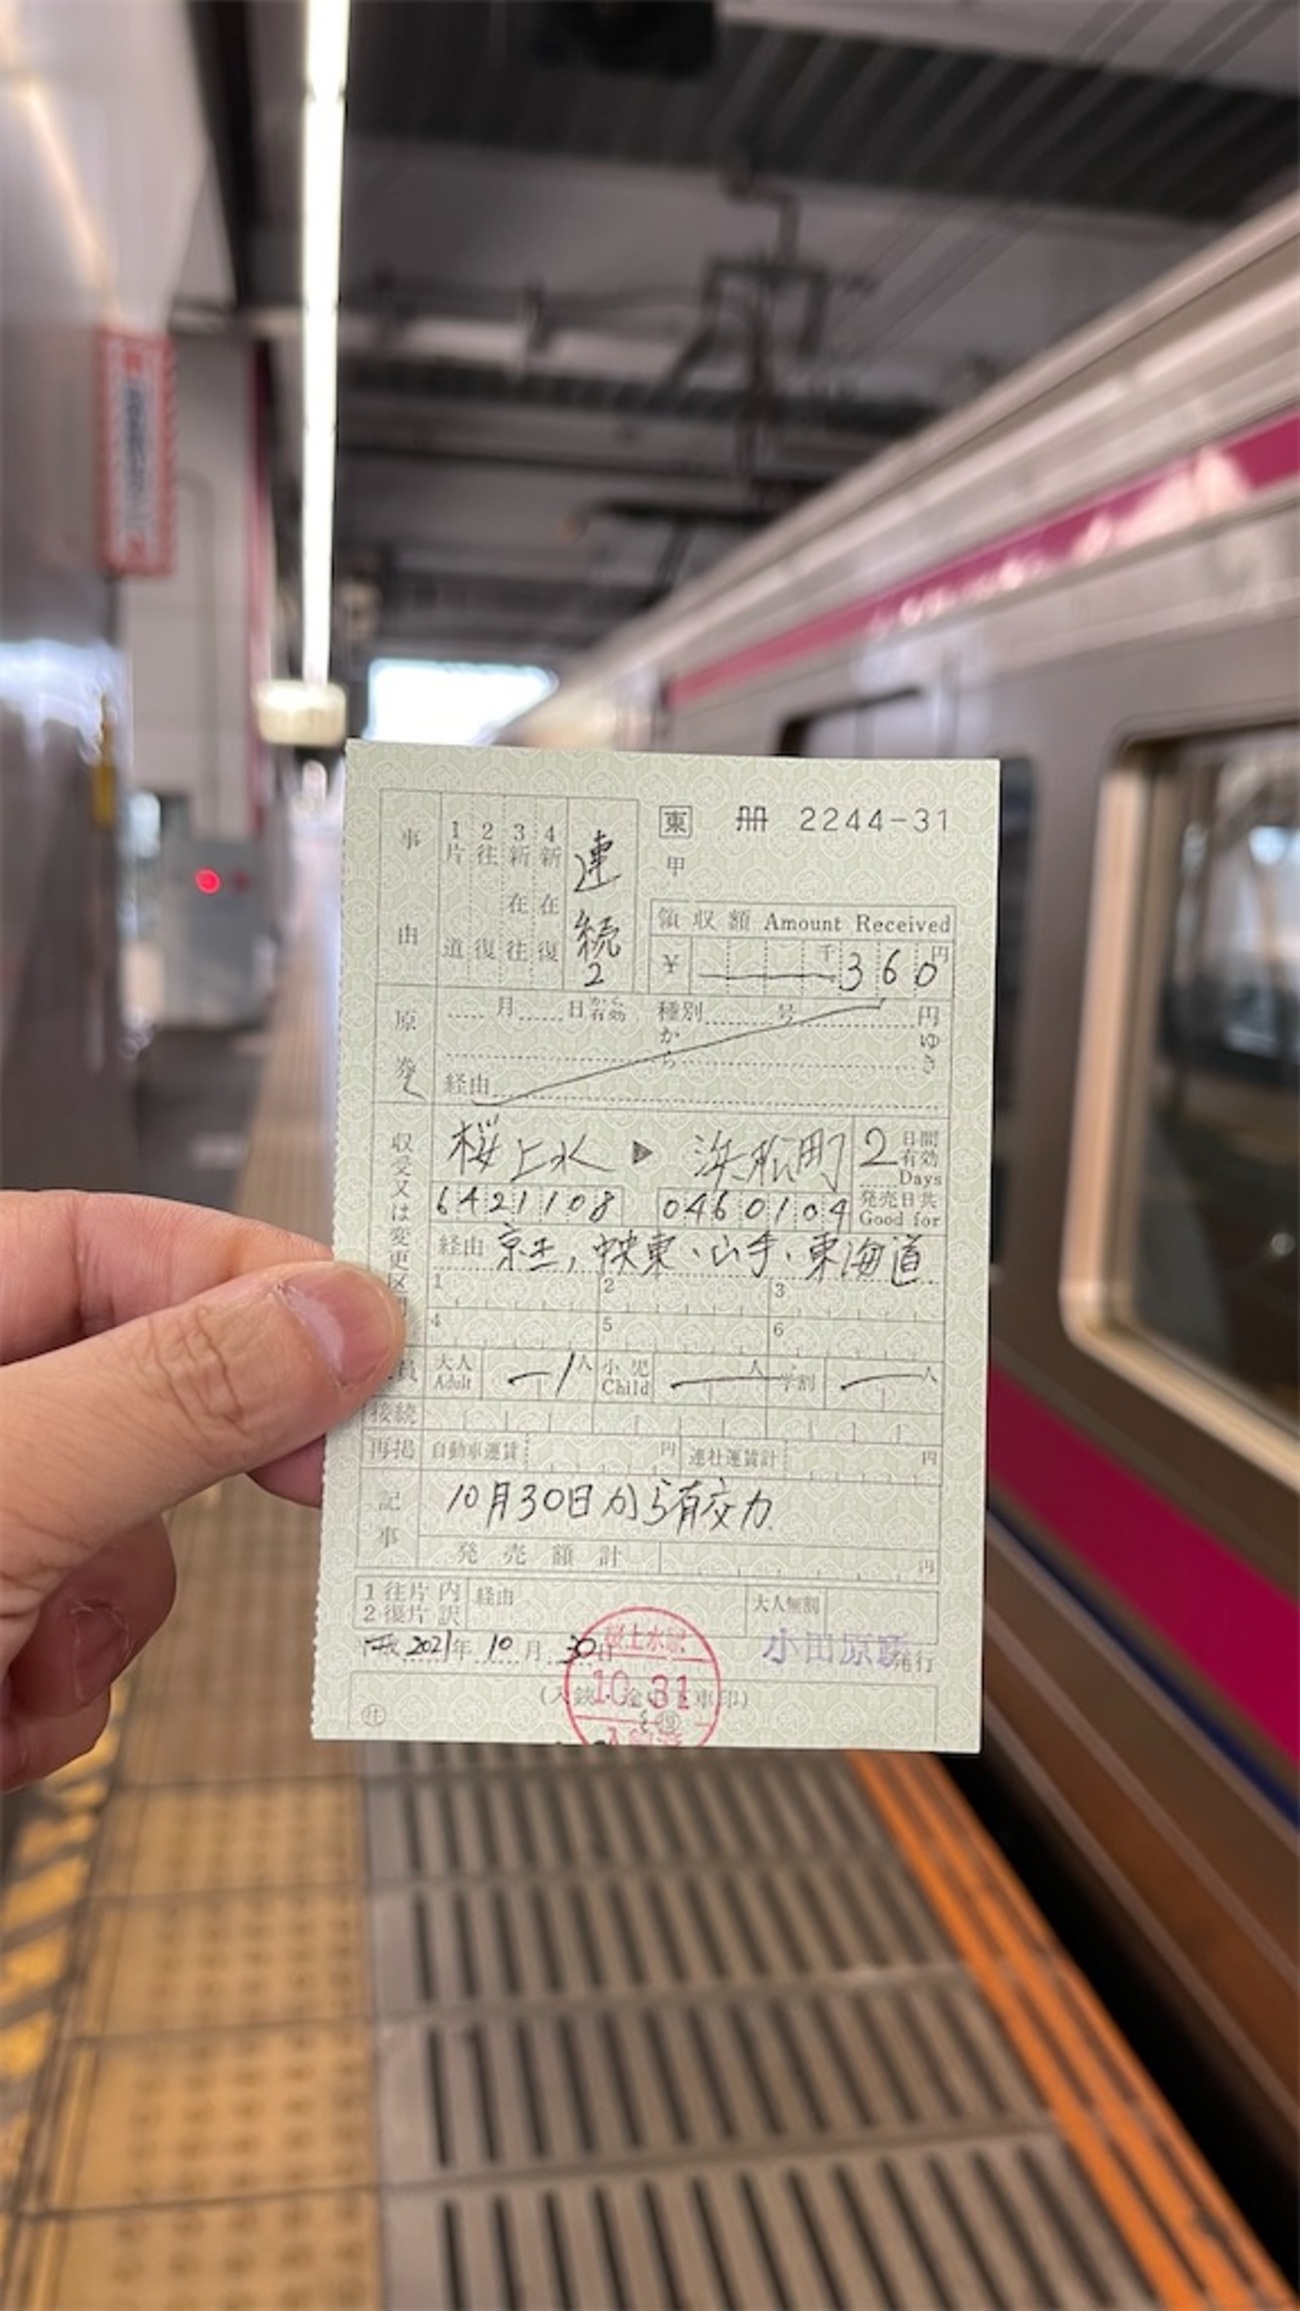 事由
1片道
2往復
3新在往
4新在復
連続2
東 冊 2244-31
甲
領収額 Amount Received
¥ 千 360円
原券
月 日から有効 種別 号 円
から ゆき
経由
収受又は変更区
桜上水 ▶ 浜松町
2日間有効 Days
6421108 0460104
発売日共 Good for
経由 京王,中央東、山手、東海道
1 2 3
4 5 6
員 大人 Adult 1人 小児 Child 人 学割 人
接続
再掲 自動車運賃 円 連社運賃計 円
記事
10月30日から有効
発売額計 円
1往片内
2復片訳
経由 大人無割
2021年 10月 30日 小田原駅発行
桜上水駅
10.31
(入鋏・途中下車印)
社